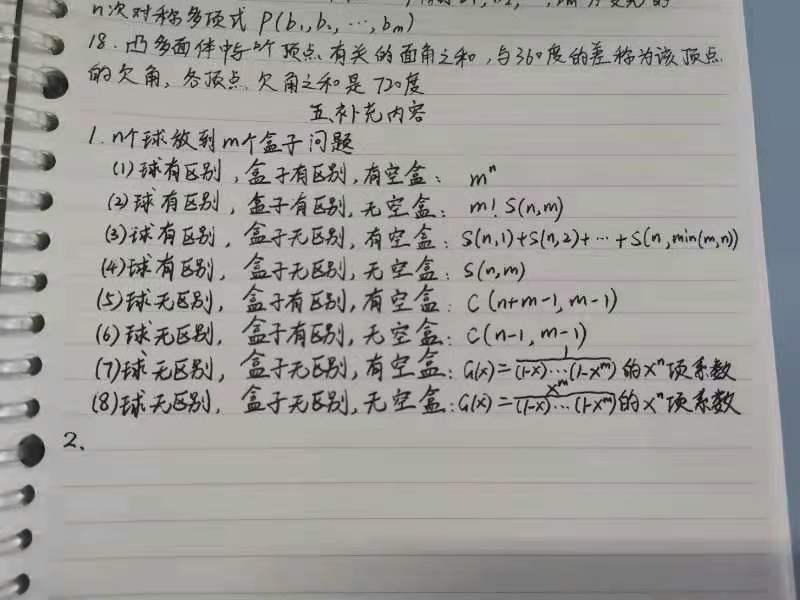 n次对称多项式 P(b₁,b₂,…,bₘ)
18.凸多面体中与一个顶点有关的面角之和,与360度的差称为该顶点
的欠角,各顶点欠角之和是720度
五、补充内容
1.n个球放到m个盒子问题
(1)球有区别,盒子有区别,有空盒: mⁿ
(2)球有区别,盒子有区别,无空盒: m! S(n,m)
(3)球有区别,盒子无区别,有空盒: S(n,1)+S(n,2)+…+S(n,min(m,n))
(4)球有区别,盒子无区别,无空盒: S(n,m)
(5)球无区别,盒子有区别,有空盒: C(n+m-1,m-1)
(6)球无区别,盒子有区别,无空盒: C(n-1,m-1)
(7)球无区别,盒子无区别,有空盒: G(x)=1/(1-x)…(1-xᵐ)的xⁿ项系数
(8)球无区别,盒子无区别,无空盒: G(x)=xᵐ/(1-x)…(1-xᵐ)的xⁿ项系数
2、